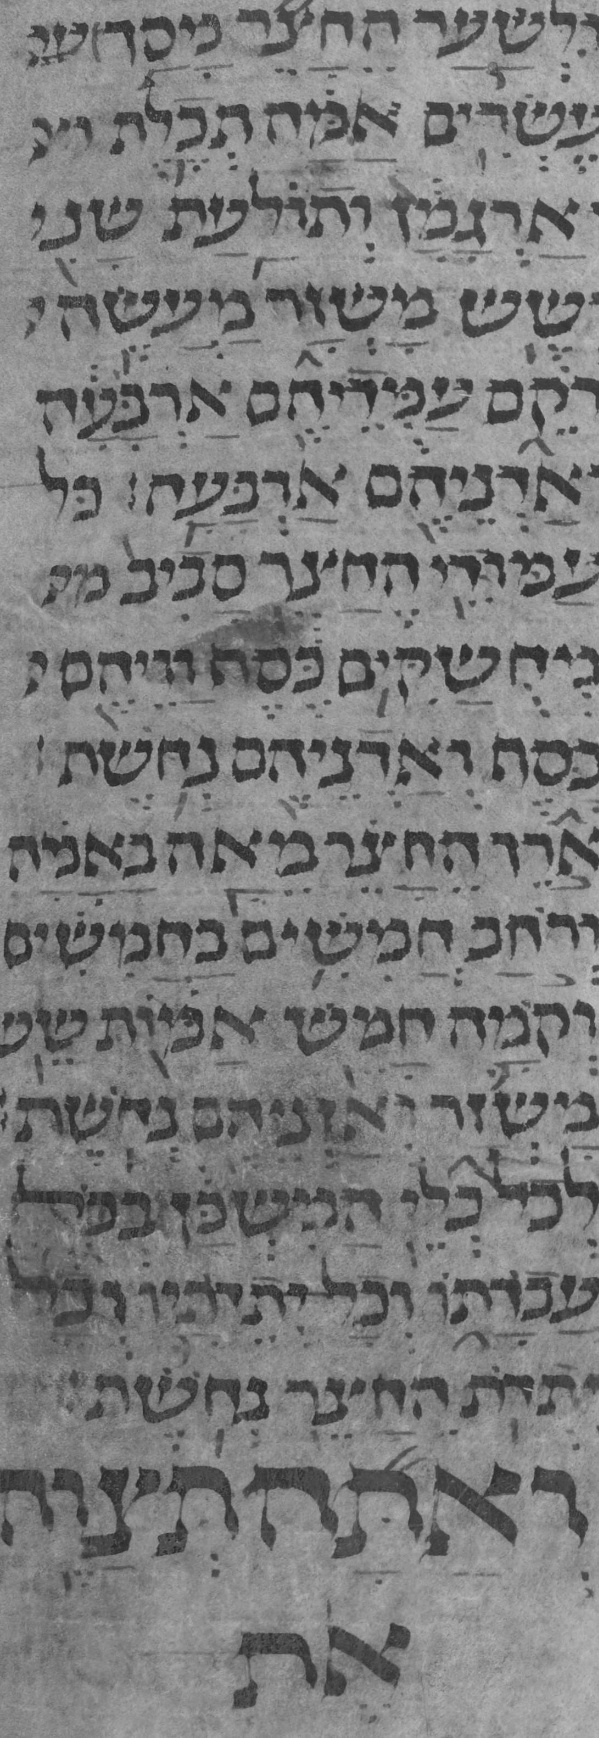 ולשער החצר מסך ׀
עשרים אמה תכלת
וארגמן ותולעת שני
ושש משזר מעשה
רקם עמדיהם ארבעה
ואדניהם ארבעה׃ כל
עמודי החצר סביב
מחשקים כסף וויהם
כסף ואדניהם נחשת׃
ארך החצר מאה באמה
ורחב חמשים בחמשים
וקמה חמש אמות שש
משזר ואדניהם נחשת׃
לכל כלי המשכן בכל
עבדתו וכל יתדתיו וכל
יתדת החצר נחשת׃
ואתה תצוה
את